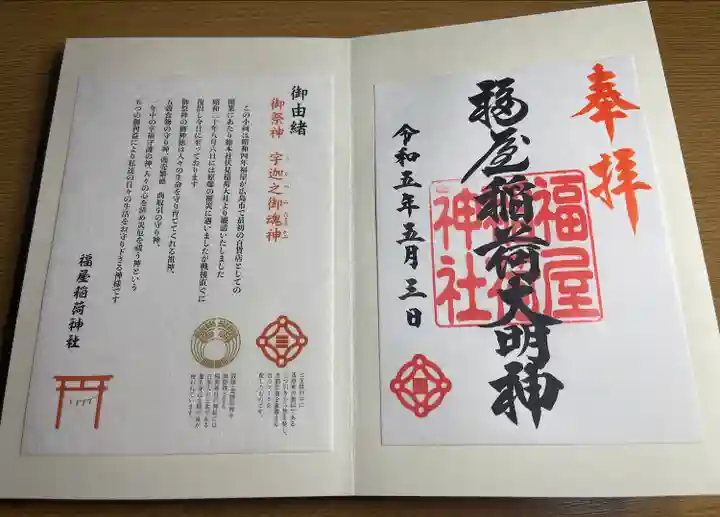 奉拝
福屋稲荷大明神
福屋稲荷神社
令和五年五月三日
御由緒
御祭神 宇迦之御魂神
この小祠は昭和四年福屋が広島市で最初の百貨店としての
開業にあたり総本社伏見稲荷大社より勧請いたしました
昭和二十年八月六日には原爆の被災に遇いましたが戦後直ぐに
復旧し今日に至っております
御祭神の御神徳は人々の生命を守り育ててくれる祖神、
五穀食物の守り神、商売繁盛 商取引の守り神、
一年中の幸福守護の神、人々の心を清め災厄を祓う神という
五つの御利益により私達の日々の生活をお守り下さる神様です
福屋稲荷神社